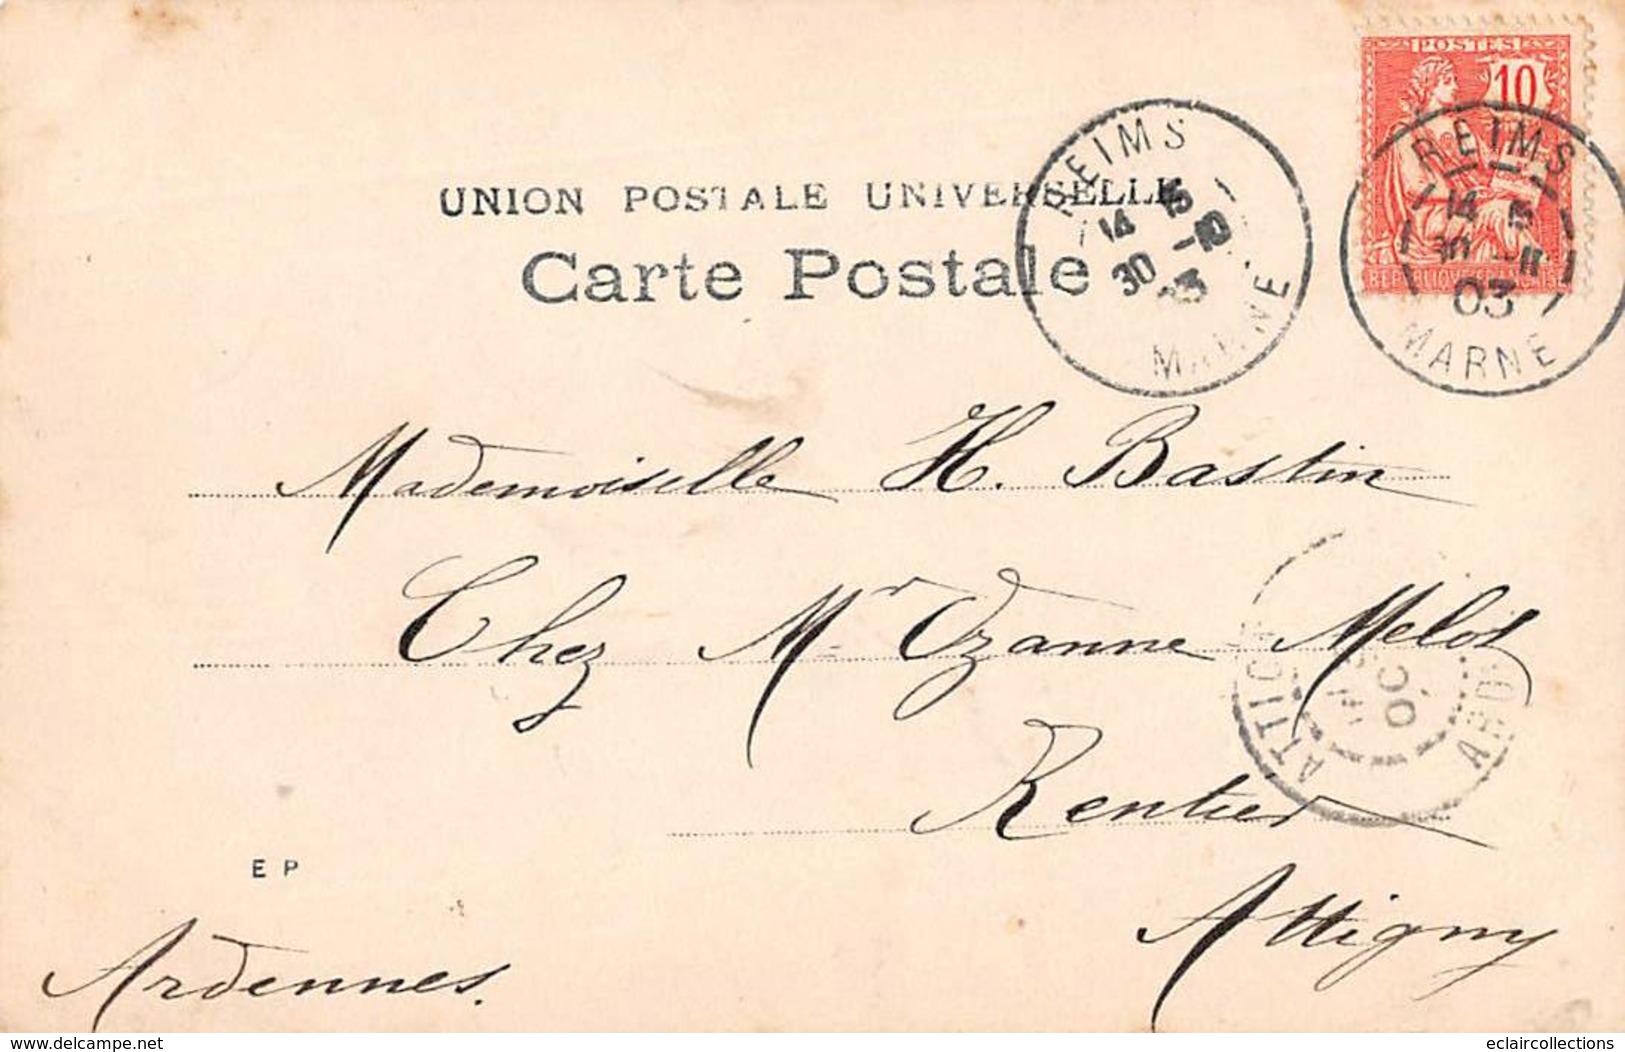 POSTES
10
REPUBLIQUE FRANÇAISE
REIMS
14
30
03
MARNE
REIMS
14
30
03
MARNE
UNION POSTALE UNIVERSELLE
Carte Postale
Mademoiselle H. Bastin
Chez Mr Ozanne Melot
Rentier
Attigny
Ardennes.
E P
ATTIG
OC
ARD
www.delcampe.net
eclaircollections